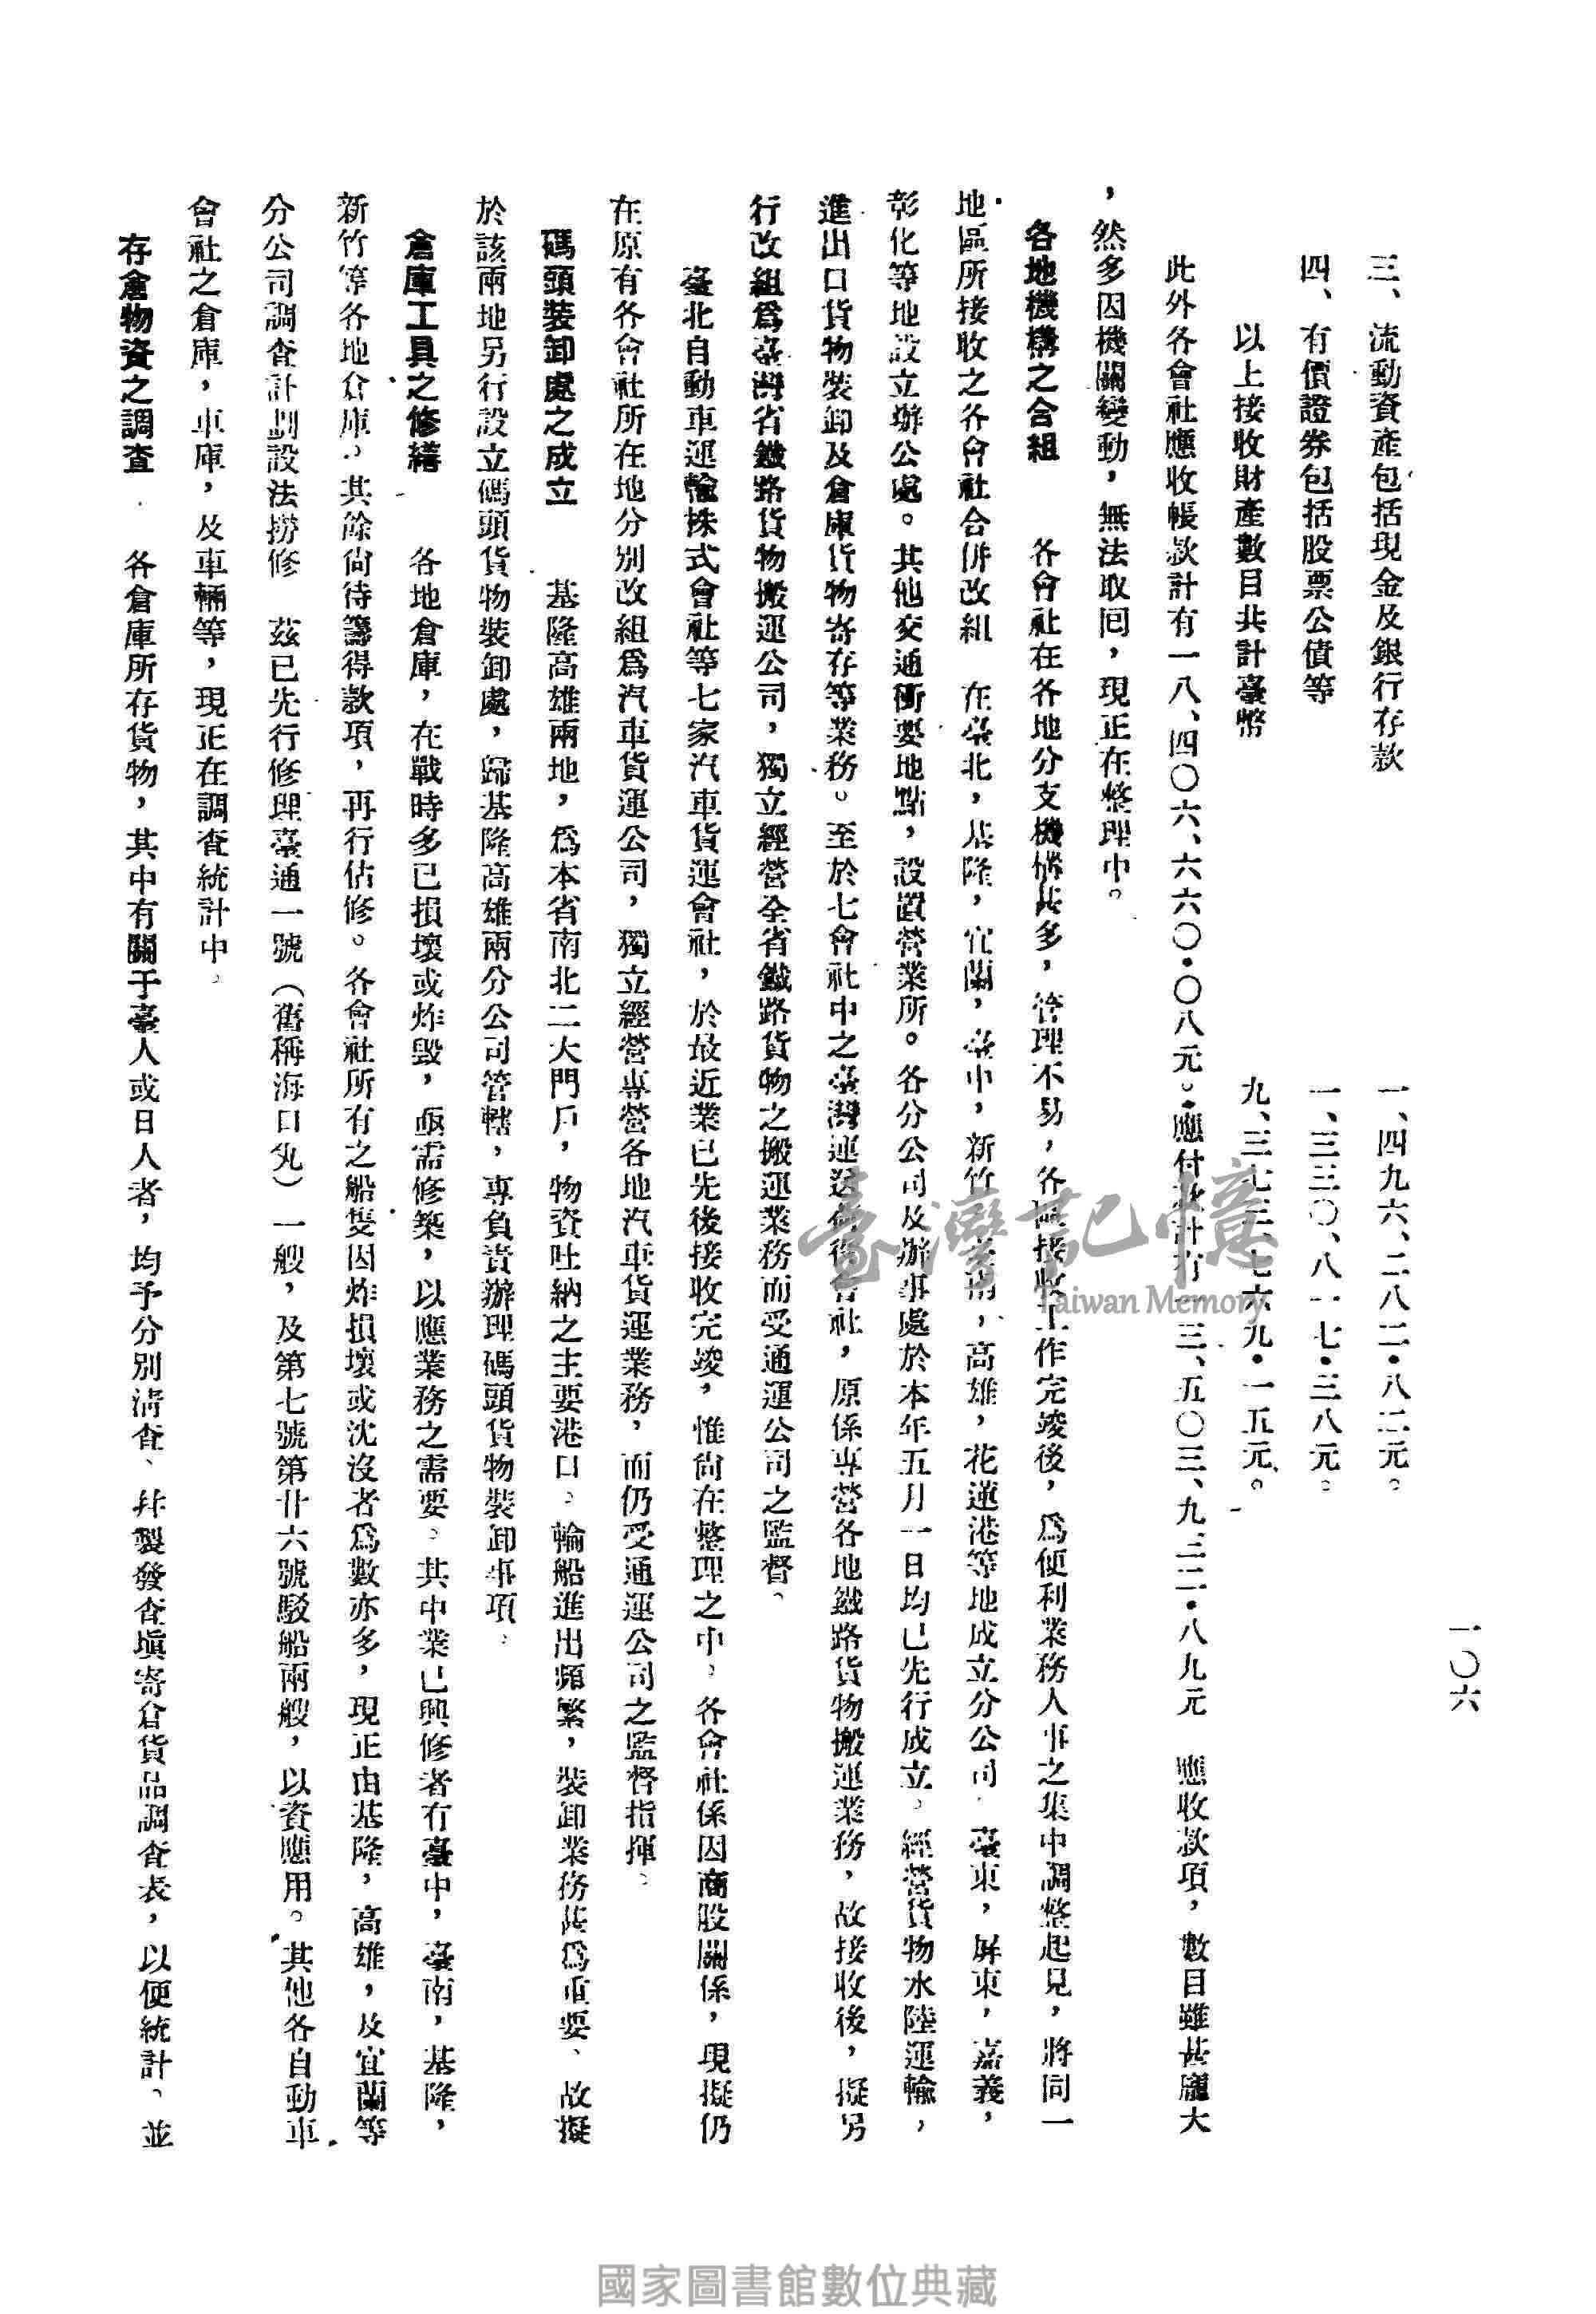 一〇六
三、流動資產包括現金及銀行存款　一、四九六、二八二・八二元。
四、有價證券包括股票公債等　一、三三〇、八一七・三八元。
以上接收財產數目共計臺幣　九、三七三、七六九・一五元。
此外各會社應收帳款計有一八、四〇六、六六〇・〇八元。應付款計有一三、五〇三、九三二・八九元　應收款項，數目雖甚龐大
，然多因機關變動，無法取回，現正在整理中。
各地機構之合組　各會社在各地分支機構甚多，管理不易，各區接收工作完竣後，爲便利業務人事之集中調整起見，將同一
地區所接收之各會社合併改組　在臺北，基隆，宜蘭，臺中，新竹，臺南，高雄，花蓮港等地成立分公司，臺東，屏東，嘉義，
彰化等地設立辦公處。其他交通衝要地點，設置營業所。各分公司及辦事處於本年五月一日均已先行成立。經營貨物水陸運輸，
進出口貨物裝卸及倉庫貨物寄存等業務。至於七會社中之臺灣運送荷役會社，原係專營各地鐵路貨物搬運業務，故接收後，擬另
行改組爲臺灣省鐵路貨物搬運公司，獨立經營全省鐵路貨物之搬運業務而受通運公司之監督。
臺北自動車運輸株式會社等七家汽車貨運會社，於最近業已先後接收完竣，惟尙在整理之中。各會社係因商股關係，現擬仍
在原有各會社所在地分別改組爲汽車貨運公司，獨立經營專營各地汽車貨運業務，而仍受通運公司之監督指揮。
碼頭裝卸處之成立　基隆高雄兩地，爲本省南北二大門戶，物資吐納之主要港口。輪船進出頻繁，裝卸業務甚爲重要、故擬
於該兩地另行設立碼頭貨物裝卸處，歸基隆高雄兩分公司管轄，專負責辦理碼頭貨物裝卸事項。
倉庫工具之修繕　各地倉庫，在戰時多已損壞或炸毀，亟需修築，以應業務之需要。其中業已興修者有臺中，臺南，基隆，
新竹等各地倉庫。其餘尙待籌得款項，再行估修。各會社所有之船隻因炸損壞或沈沒者爲數亦多，現正由基隆，高雄，及宜蘭等
分公司調查計劃設法撈修　茲已先行修理臺通一號（舊稱海口丸）一艘，及第七號第廿六號駁船兩艘，以資應用。其他各自動車
會社之倉庫，車庫，及車輛等，現正在調查統計中。
存倉物資之調查　各倉庫所存貨物，其中有關于臺人或日人者，均予分別淸查、幷製發查塡寄倉貨品調查表，以便統計、並
臺灣記憶
Taiwan Memory
國家圖書館數位典藏